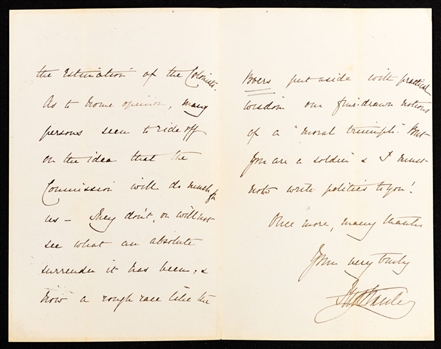 the estimation of the Colonists.
As to home opinion, many
persons seem to ride off
on the idea that the
Commission will do much for
us – They don't, or will not
see what an absolute
surrender it has been, &
how a rough race like the
Boers put aside with practical
wisdom our fine-drawn notions
of a "moral triumph". But
you are a soldier & I must
not write politics to you!
Once more, many thanks
Yours very truly